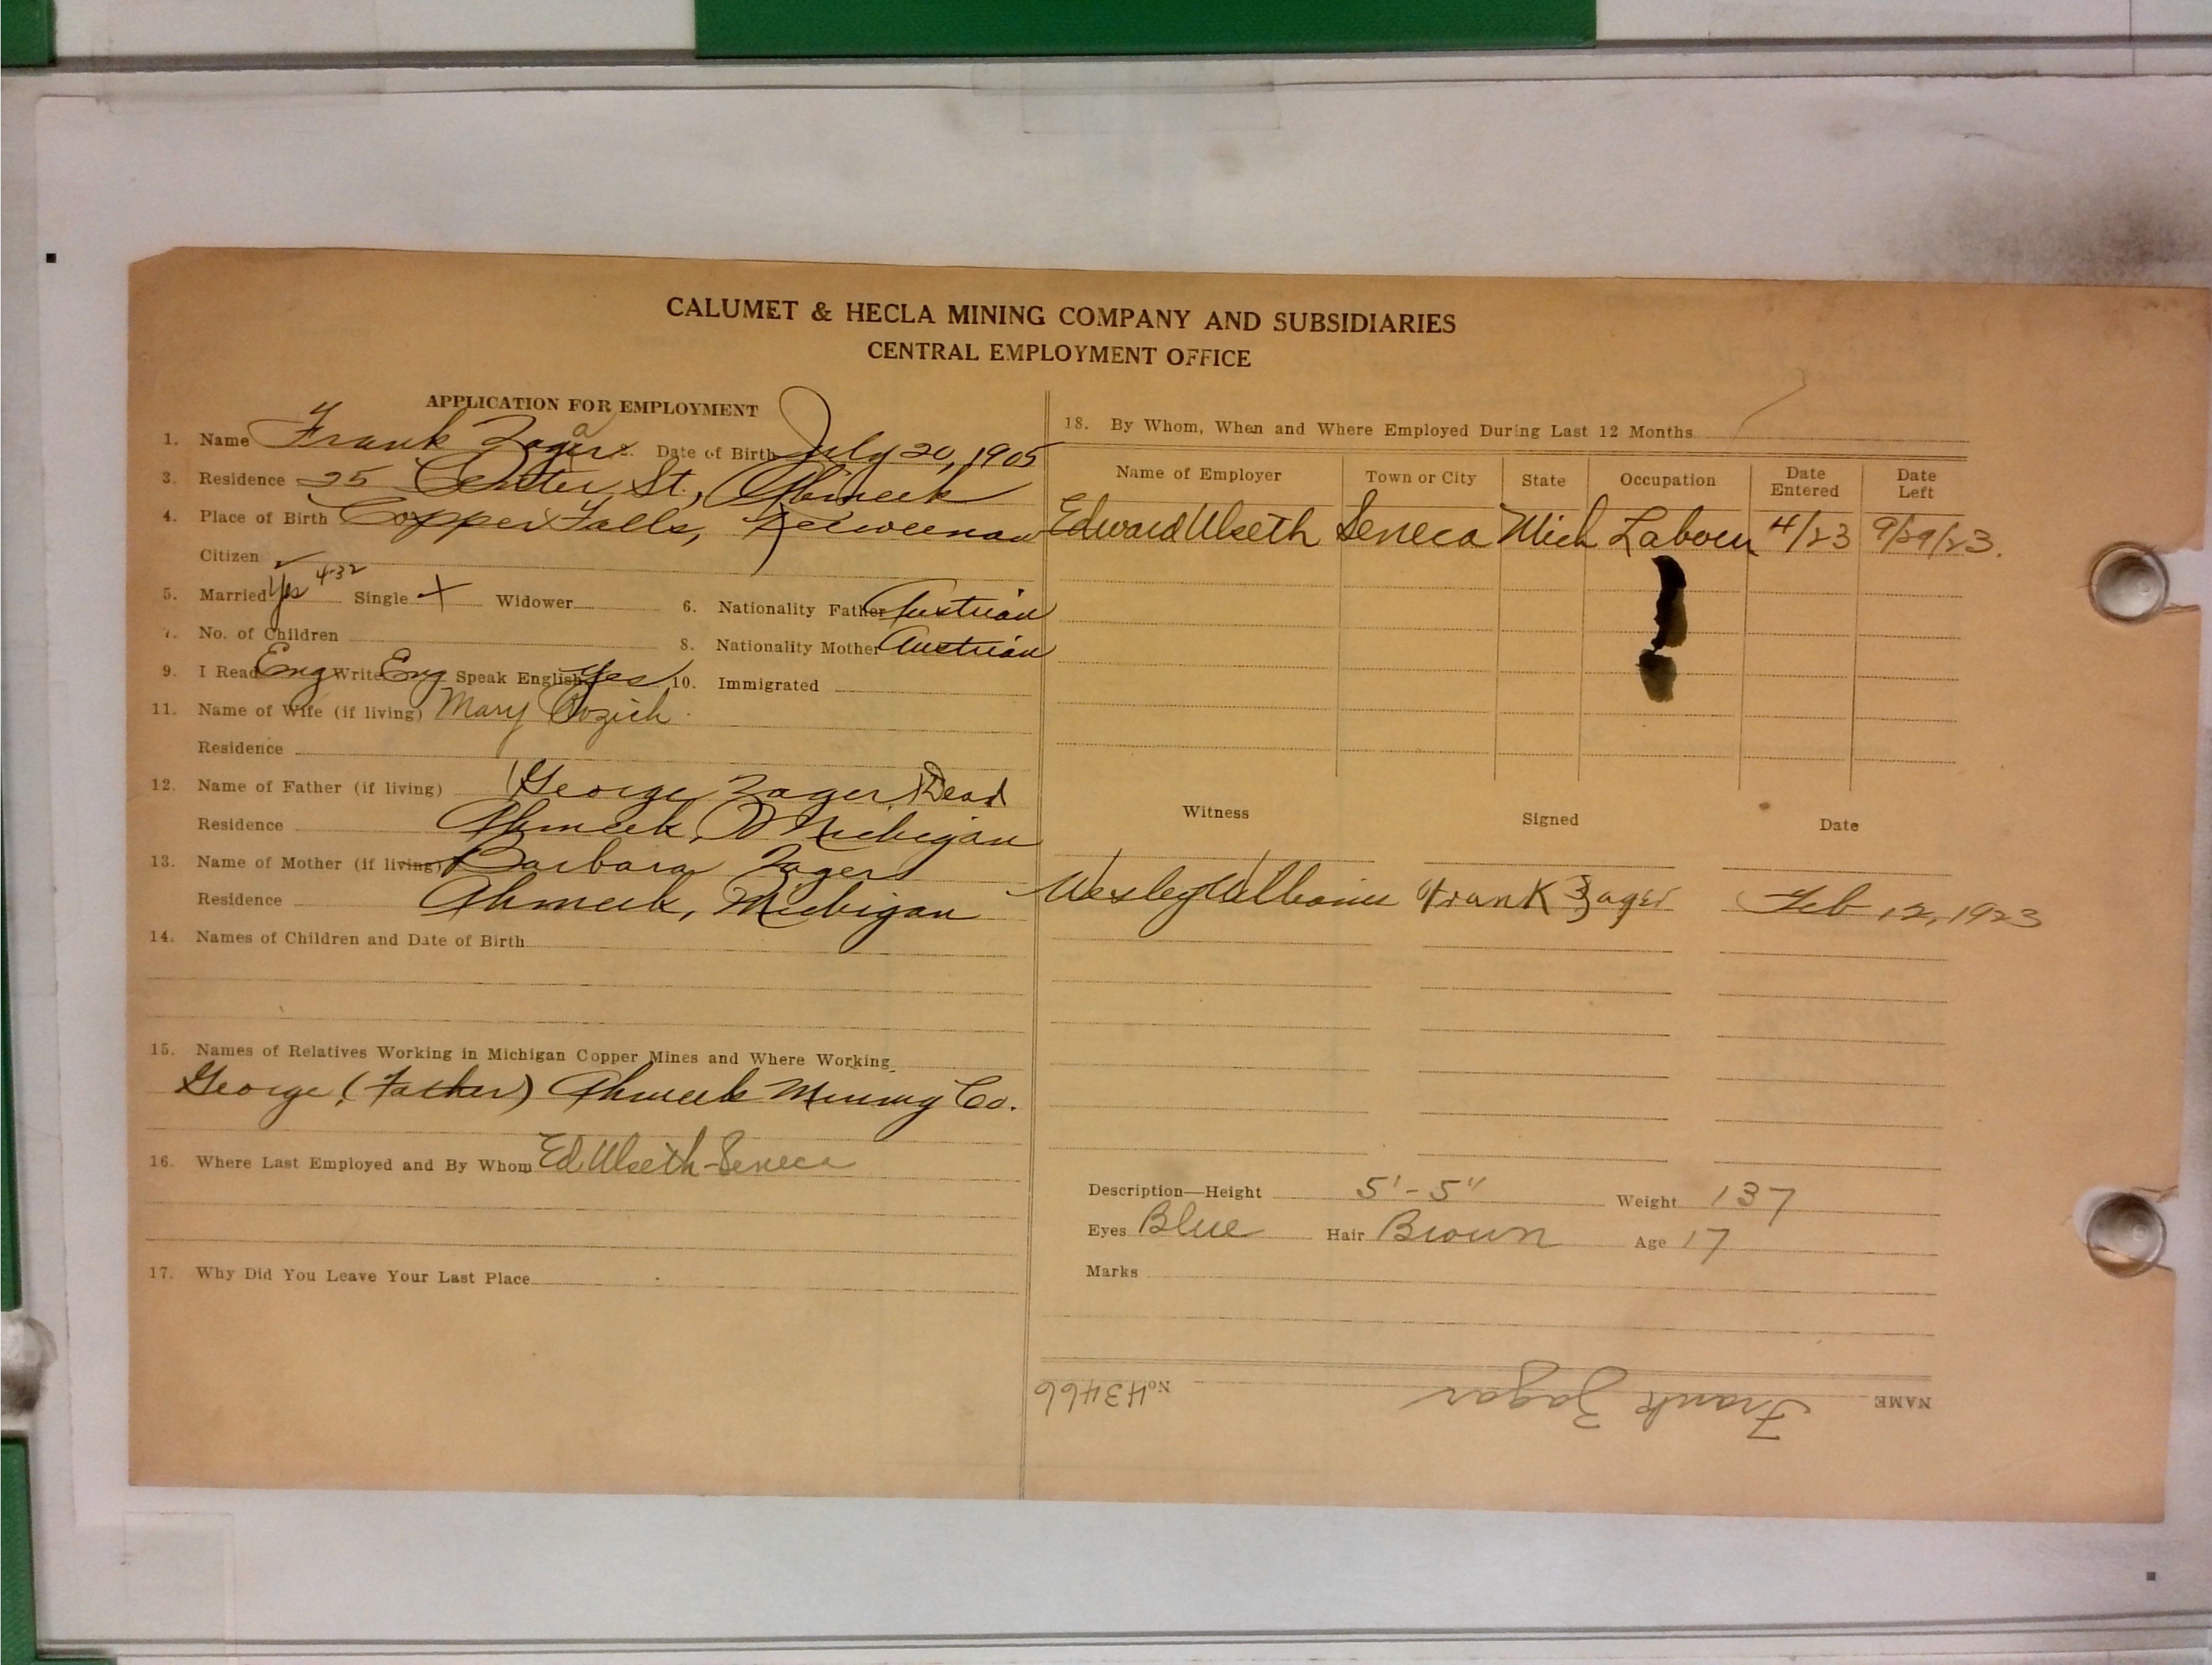 CALUMET & HECLA MINING COMPANY AND SUBSIDIARIES
CENTRAL EMPLOYMENT OFFICE
APPLICATION FOR EMPLOYMENT
1. Name Frank Zager a Date of Birth July 20, 1905
3. Residence 25 Center St., Ahmeek
4. Place of Birth Copper Falls, Keweenaw
Citizen ✓
5. Married Yes 4-32 Single X Widower 6. Nationality Father Austrian
7. No. of Children 8. Nationality Mother Austrian
9. I Read Eng Write Eng Speak English Yes 10. Immigrated
11. Name of Wife (if living) Mary
Residence
12. Name of Father (if living) (George Zager) Dead
Residence Ahmeek, Michigan
13. Name of Mother (if living) Barbara Zager
Residence Ahmeek, Michigan
14. Names of Children and Date of Birth
15. Names of Relatives Working in Michigan Copper Mines and Where Working
George (Father) Ahmeek Mining Co.
16. Where Last Employed and By Whom Ed Ulseth-Seneca
17. Why Did You Leave Your Last Place
18. By Whom, When and Where Employed During Last 12 Months
Name of Employer Town or City State Occupation Date Entered Date Left
Edward Ulseth Seneca Mich Labour 4/23 9/29/23.
Witness Signed Date
Wesley Williams Frank Zager Feb 12, 1923
Description—Height 5'-5" Weight 137
Eyes Blue Hair Brown Age 17
Marks
NAME Frank Zagar No. 43466